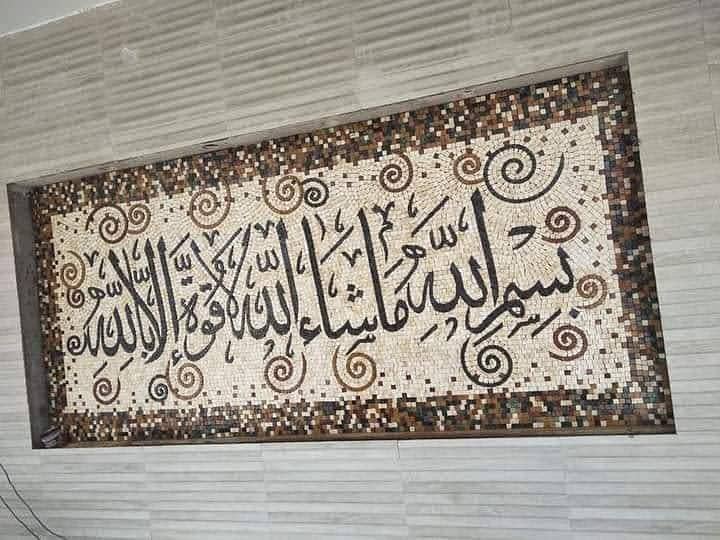 بِسْمِ اللّٰهِ مَا شَاءَ اللّٰه لَا قُوَّةَ إِلَّا بِاللّٰهِ